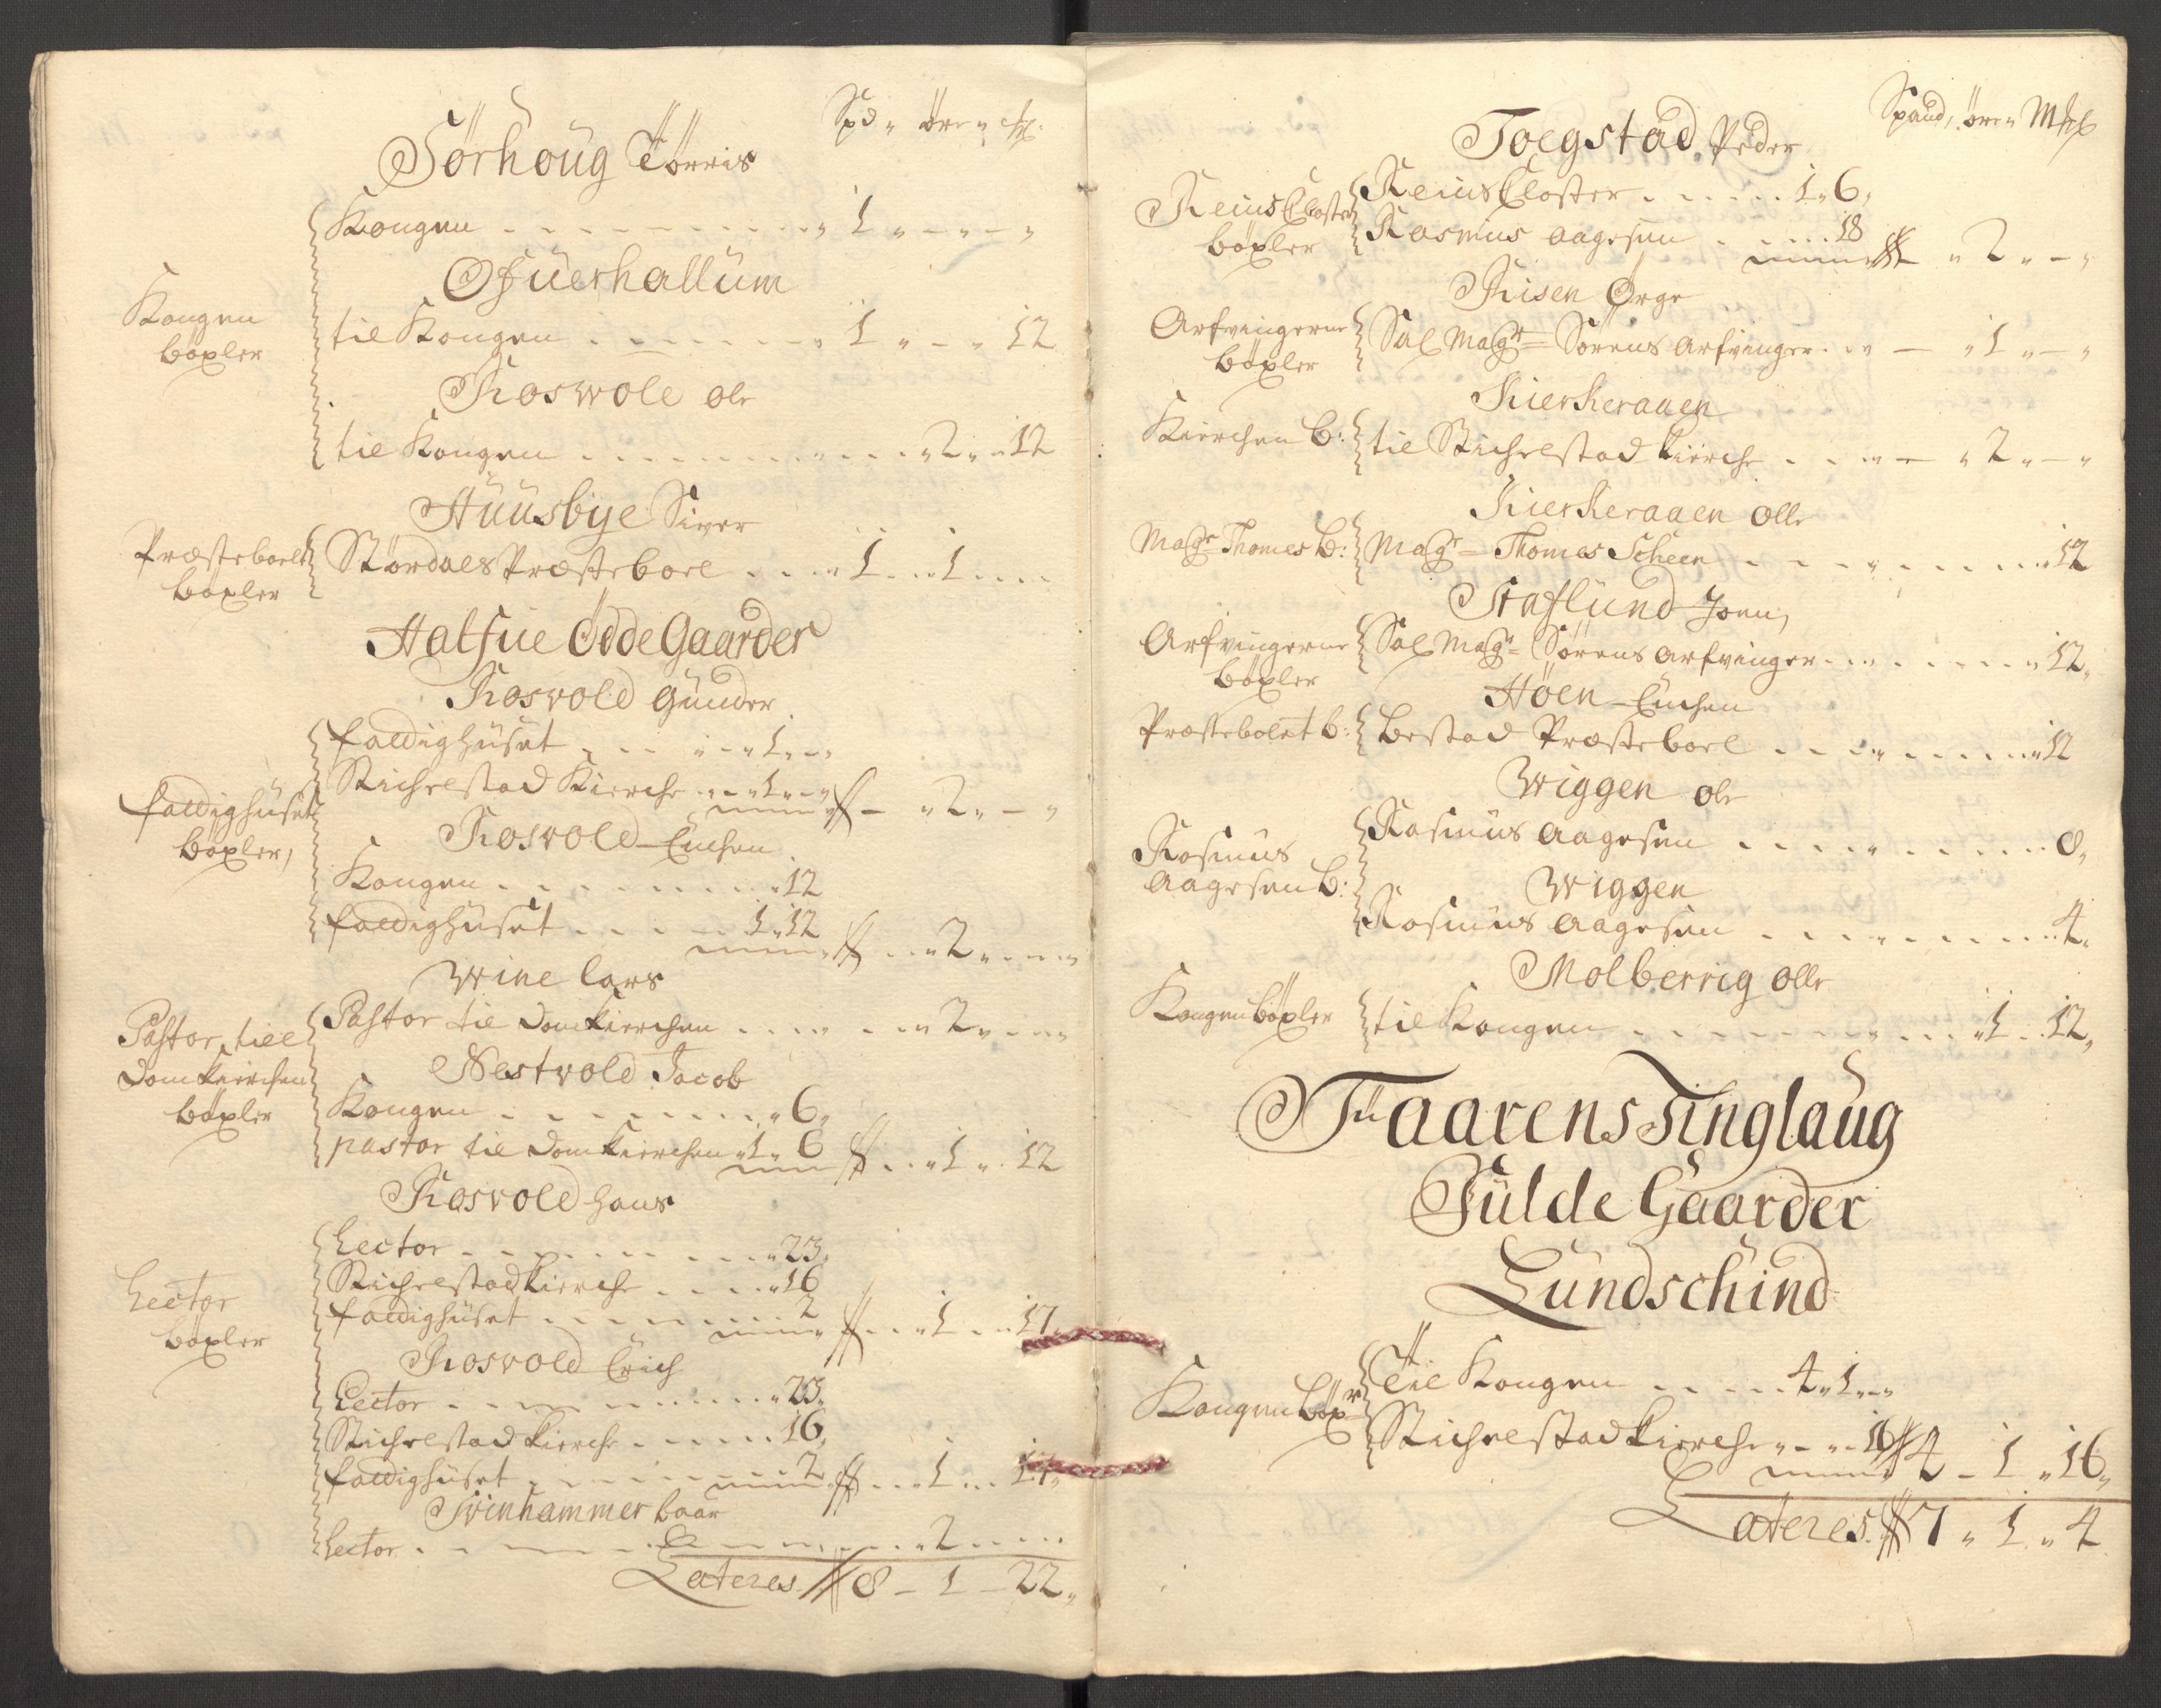 Spd„ öre„
Sörhoug Törris
Kongen . . . „ 1 „ – „ – „
Ofuerhallum
Kongen
böxler
til Kongen . . . „ 1 „ – „ 12
Roswole ole
til Kongen . . . „ 2 „ „ 12
Huusbye Siver
Præsteboelet
böxler
Stördals Præsteboel . . . „ 1 . . . 1 . . .
Halfue Ödde Gaarder
Rosvold Gunder
fattighuset . . . „ 1 „ – „
Stichelstad Kierche . . . „ 1 „ – „
# – „ 2 „ – „
fattighuset
böxler,
Rosvold Enchen
Kongen . . . „ 12
fattighuset . . . 1 „ 12
# . . . „ 2 „ . . .
Wine Lars
Pastor till
Domkierchen
böxler
Pastor til Domkierchen . . . „ 2 „ . . .
Nestvold Jacob
Kongen . . . „ 6 „
pastor til Domkierchen „ 1 „ 6
# . . . „ 1 „ . 12
Rosvold Hans
Lector
böxler
Lector . . . „ 23 „
Stichelstad kierche . . . „ 16
fattighuset . . . 2
# . . . „ 1 . . . 17
Rosvold Erich
Lector . . . „ 23 „
Stichelstad kierche . . . 16 „
fattighuset . . . 2
# . . . „ 1 . . . 17 „
Svinhammer Baar
Lector . . . „ 2 . . .
Lateres # 8 – 1 – 22 „
Spand, öre „ Mkl
Toegstad Peder
Reins Closter
böxler
Reins Closter . . . 1 „ 6 „
Rasmus Aagesen . . . 18
# „ 2 „ – „
Risen Ørge
Arfvingerne
böxler
Sal Magr= Sörens Arfvinger . . . – „ 1 „ – „
Kierkeraaen
Kierchen b: til Stichelstad Kierche . . . – „ 2 „ – „
Kierkeraaen Olle
Magr Thomes b: Magr= Thomas Scheen . . . „ 12
Staflund Joen,
Arfvingerne
böxler
Sal Magr= Sörens Arfvinger . . . „ 12 „
Höen Enchen
Præstebolet b: Bestad Præsteboel . . . „ 12
Wiggen ole
Rasmus
Aagesen b:
Rasmus Aagesen . . . 8 „
Wiggen
Rasmus Aagesen . . . 4 „
Molberrig Olle
Kongen böxler til Kongen . . . „ 1 . . 12 „
Taarens Tinglaug
Fulde Gaarder
Lundschind
Kongen böxr
Til Kongen . . . 4 „ 1 „ – „
Stichelstad kierche „ – „ 16
# 4 – 1 „ 16 „
Lateres # 7 „ 1 „ 4